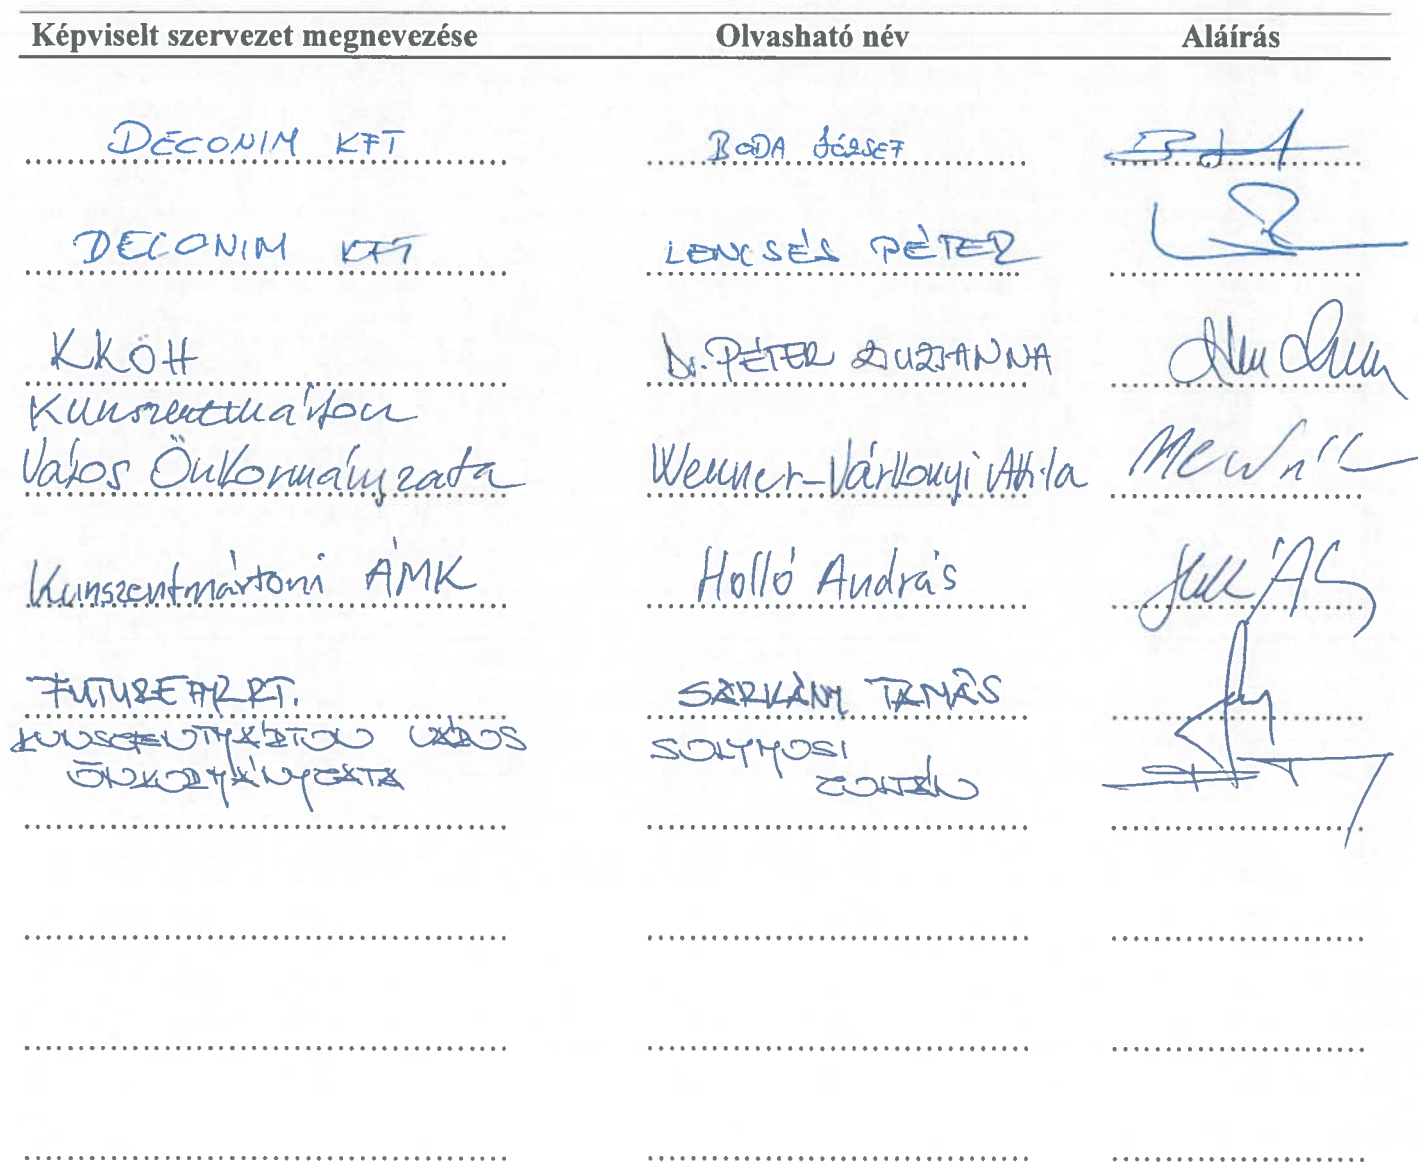 Képviselt szervezet megnevezése Olvasható név Aláírás
DECONIM KFT BODA JÓZSEF
DECONIM KFT LENCSÉS PÉTER
KKÖH Dr. PÉTER ZSUZSANNA
Kunszentmárton
Város Önkormányzata Wenner-Várkonyi Attila
Kunszentmártoni ÁMK Holló András
FUTUREAL ZRT. SÁRKÁNY TAMÁS
KUNSZENTMÁRTON VÁROS SOLYMOSI
ÖNKORMÁNYZATA ZOLTÁN